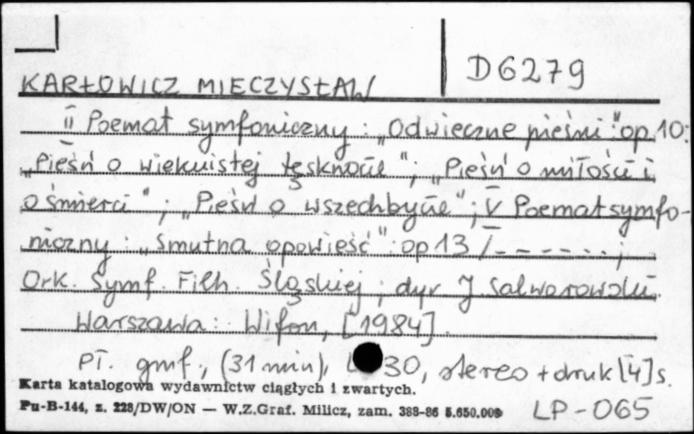 D6279
KARŁOWICZ MIECZYSŁAW
II Poemat symfoniczny : „Odwieczne pieśni" op. 10:
„Pieśń o wiekuistej tęsknocie"; „Pieśń o miłości i
o śmierci" ; „Pieśń o wszechbycie"; V Poemat symfo-
niczny : „Smutna opowieść" : op 13 /- - - - - - - ;
Ork. Symf. Filh. Śląskiej ; dyr J Salwarowski
Warszawa : Wifon, [1984].
Pł. gmf., (31 min), 30, stereo + druk [4] s.
Karta katalogowa wydawnictw ciągłych i zwartych.
Pu-B-144, z. 228/DW/ON — W.Z.Graf. Milicz, zam. 388-86 5.650.000
LP-065